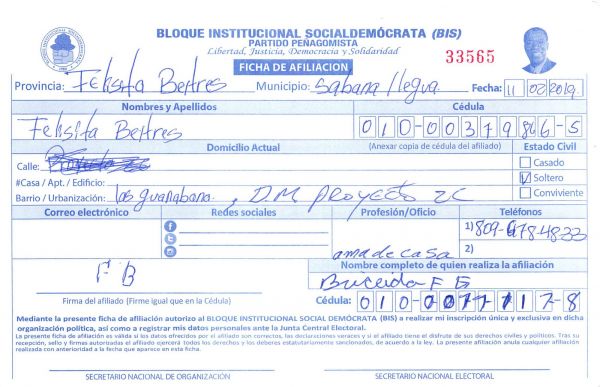 BLOQUE INSTITUCIONAL SOCIALDEMÓCRATA (BIS)
PARTIDO PEÑAGOMISTA
Libertad, Justicia, Democracia y Solidaridad
33565
FICHA DE AFILIACION
Provincia: Felsita Beltres Municipio: Sabana llegua Fecha: 11 02 2019
Nombres y Apellidos Cédula
Felsita Beltres 010-0037986-5
Domicilio Actual (Anexar copia de cédula del afiliado) Estado Civil
Calle:
Casado
#Casa / Apt. / Edificio: Soltero
Barrio / Urbanización: los guanabana, D.M Proyecto 2C Conviviente
Correo electrónico Redes sociales Profesión/Oficio Teléfonos
1) 809- 784833
2)
ama de casa
F B
Nombre completo de quien realiza la afiliación
Firma del afiliado (Firme igual que en la Cédula)
Cédula: 010-
Mediante la presente ficha de afiliación autorizo al BLOQUE INSTITUCIONAL SOCIAL DEMÓCRATA (BIS) a realizar mi inscripción única y exclusiva en dicha
organización política, así como a registrar mis datos personales ante la Junta Central Electoral.
La presente ficha de afiliación es válida si los datos ofrecidos por el afiliado son correctos, las declaraciones veraces y si el afiliado tiene el disfrute de sus derechos civiles y políticos. Tras su
recepción, sello y firmas autorizadas el afiliado ejercerá todos los derechos y los deberes estatutariamente sancionados, de acuerdo a la ley. La presente afiliación anula cualquier afiliación
realizada con anterioridad a la fecha que aparece en esta ficha.
SECRETARIO NACIONAL DE ORGANIZACIÓN SECRETARIO NACIONAL ELECTORAL